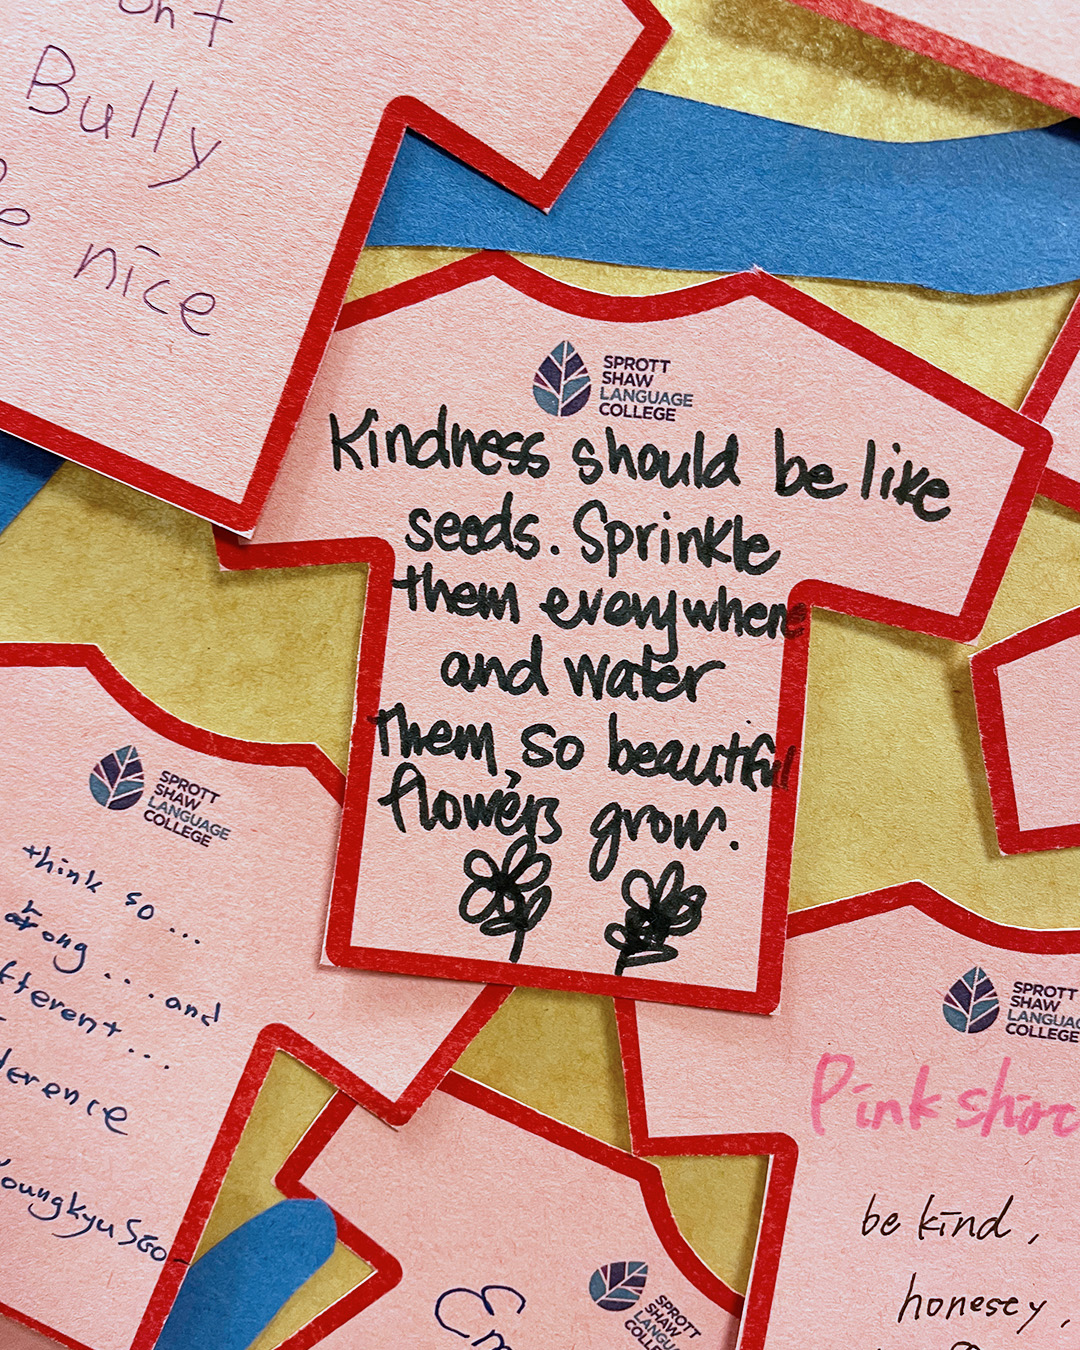 Bully
nice
SPROTT
SHAW
LANGUAGE
COLLEGE
Kindness should be like
seeds. Sprinkle
them everywhere
and water
them, so beautiful
flowers grow.
SPROTT
SHAW
LANGUAGE
COLLEGE
think so ...
... and
...
YoungkyuSEO
SPROTT
SHAW
COLLEGE
Pink
be kind,
honesey,
SPROTT
SHAW